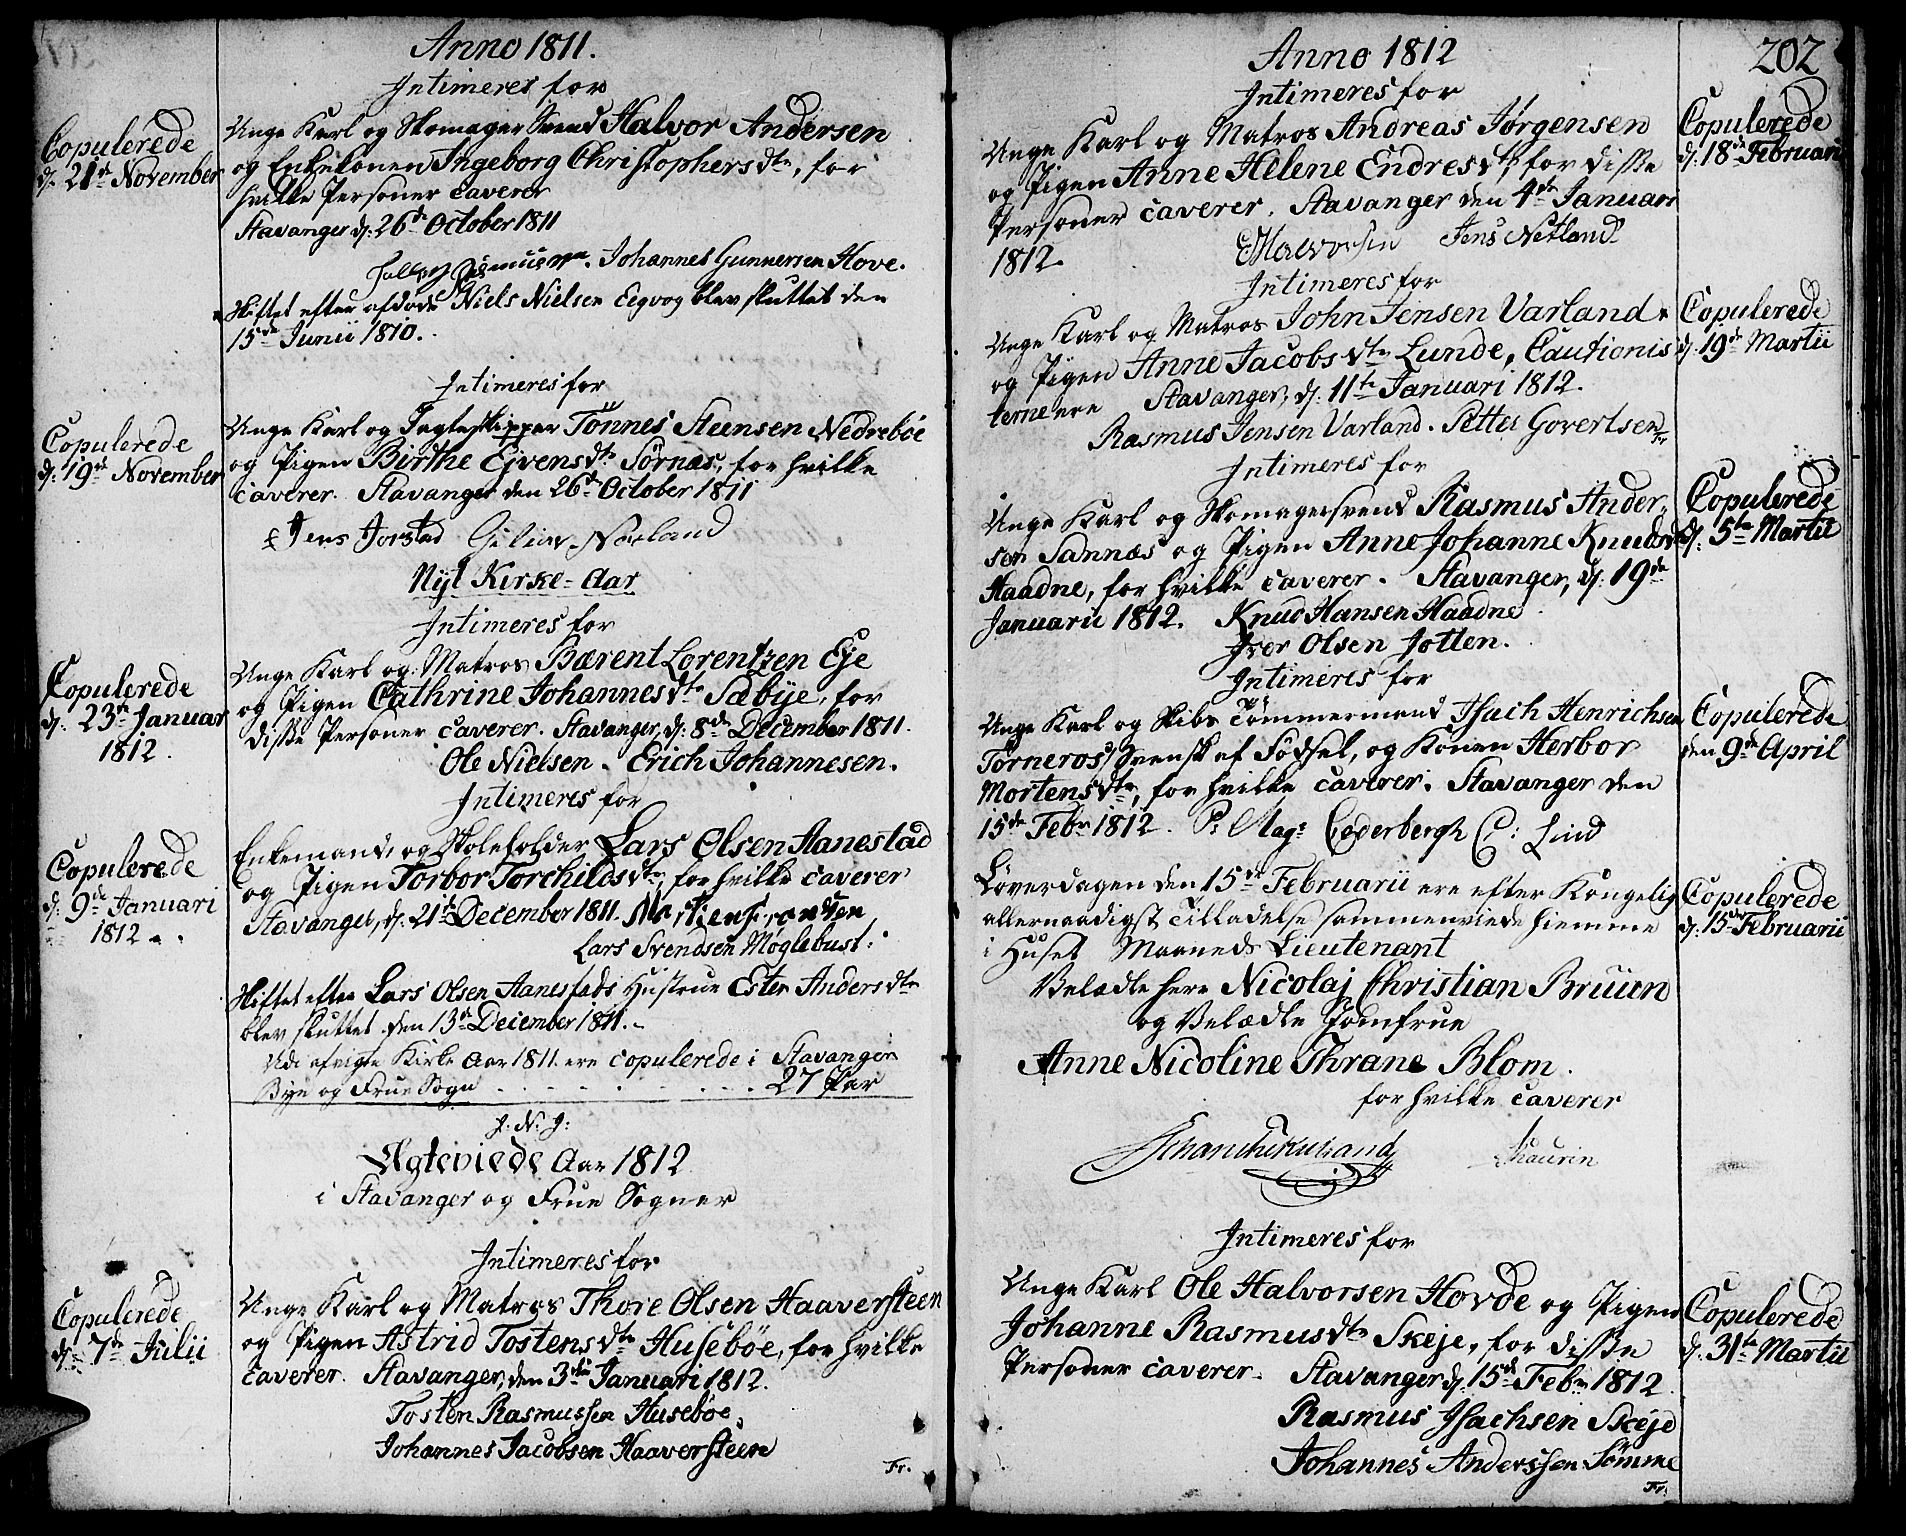 Anno 1811.
Intimeres for
Copulerede
d: 21de November
Unge Karl og Skomager Svend Halvor Andersen
og Enkekonen Ingeborg Christophers dtr, for
hvilke Personer caverer
Stavanger d: 26de October 1811
Johannes Gunnersen Hove.
Skiftet efter afdøde Niels Nielsen Eegvog blev sluttet den
15de Junii 1810.
Intimeres for
Copulerede
d: 19de November
Unge Karl og Jagteskipper Tönnes Steensen Nedreböe
og Pigen Birthe Ejvens dtr Sörnæs, for hvilke
caverer. Stavanger den 26de October 1811
Jens Jorstad
Nyt Kirke-Aar
Intimeres for
Copulerede
d: 23de Januar
1812.
Unge Karl og Matros Bærent Lorentzen Eje
og Pigen Cathrine Johannes dtr Sæbÿe, for
disse Personer caverer. Stavanger, d: 8de December 1811.
Ole Nielsen. Erich Johannesen.
Intimeres for
Copulerede
d: 9de Januari
1812.
Enkemand, og Skoleholder Lars Olsen Aanestad
og Pigen Torbor Torchilds dtr, for hvilke caverer
Stavanger, d: 21de December 1811.
Lars Svendsen Møglebust.
Skiftet efter Lars Olsen Aanestads Hustrue Ester Anders dtr
blev sluttet den 13de December 1811.
Udi afvigte Kirke Aar 1811. ere copulerede i Stavanger
Bye og Frue Sogn . . . . . . . . 27 Par
J. N. J.
Ægteviede Aar 1812
i Stavanger og Frue Sogner
Intimeres for
Copulerede
d: 7de Julii
Unge Karl og Matros Thore Olsen Haaversteen
og Pigen Astrid Tostens dtr Huseböe, for hvilke
caverer. Stavanger, den 3die Januari 1812.
Tosten Rasmussen Huseböe,
Johannes Jacobsen Haaversteen
Fr.
Anno 1812
202
Intimeres for
Unge Karl og Matros Andreas Jørgensen
og Pigen Anne Helene Endres dtr, for disse
Personer caverer. Stavanger den 4de Januari
1812. Jens Netland
Copulerede
d: 18de Februarii
Intimeres for
Unge Karl og Matros John Jensen Varland
og Pigen Anne Jacobs dtr Lunde, Cautionis
terne ere Stavanger, d: 11te Januari 1812.
Rasmus Jensen Varland. Petter Govertsen
Fr
Copulerede
d: 19de Martii
Intimeres for
Unge Karl og Skomagersvend Rasmus Ander-
sen Sannæs og Pigen Anne Johanne Knuds dtr
Haadne, for hvilke caverer. Stavanger, d: 19de
Januarii 1812. Knud Hansen Haadne
Iver Olsen Jotten.
Copulerede
d: 5te Martii
Intimeres for
Unge Karl og Skibs Tömmermand Isach Henrichsen
Törneros, Svensk af Födsel, og Konen Herbor
Mortens dtr, for hvilke caverer. Stavanger den
15de Febr 1812. P: Mag: Cederbergh C: Lind
Copulerede
den 9de April
Löverdagen den 15de Februarii ere efter Kongelig
allernaadigst Tilladelse sammenviede hiemme
i Huset Maaneds Lieutenant
Velædle Herr Nicolaj Christian Bruun
og Velædle Jomfrue
Anne Nicoline Thrane Blom.
for hvilke caverer
Copulerede
d: 15de Februarii
Intimeres for
Unge Karl Ole Halvorsen Hovde og Pigen
Johanne Rasmus dtr Skeje, for disse
Personer caverer. Stavanger d: 15de Febr 1812
Rasmus Isachsen Skeje
Johannes Anderssen Sömme
Fr.
Copulerede
d: 31te Martii